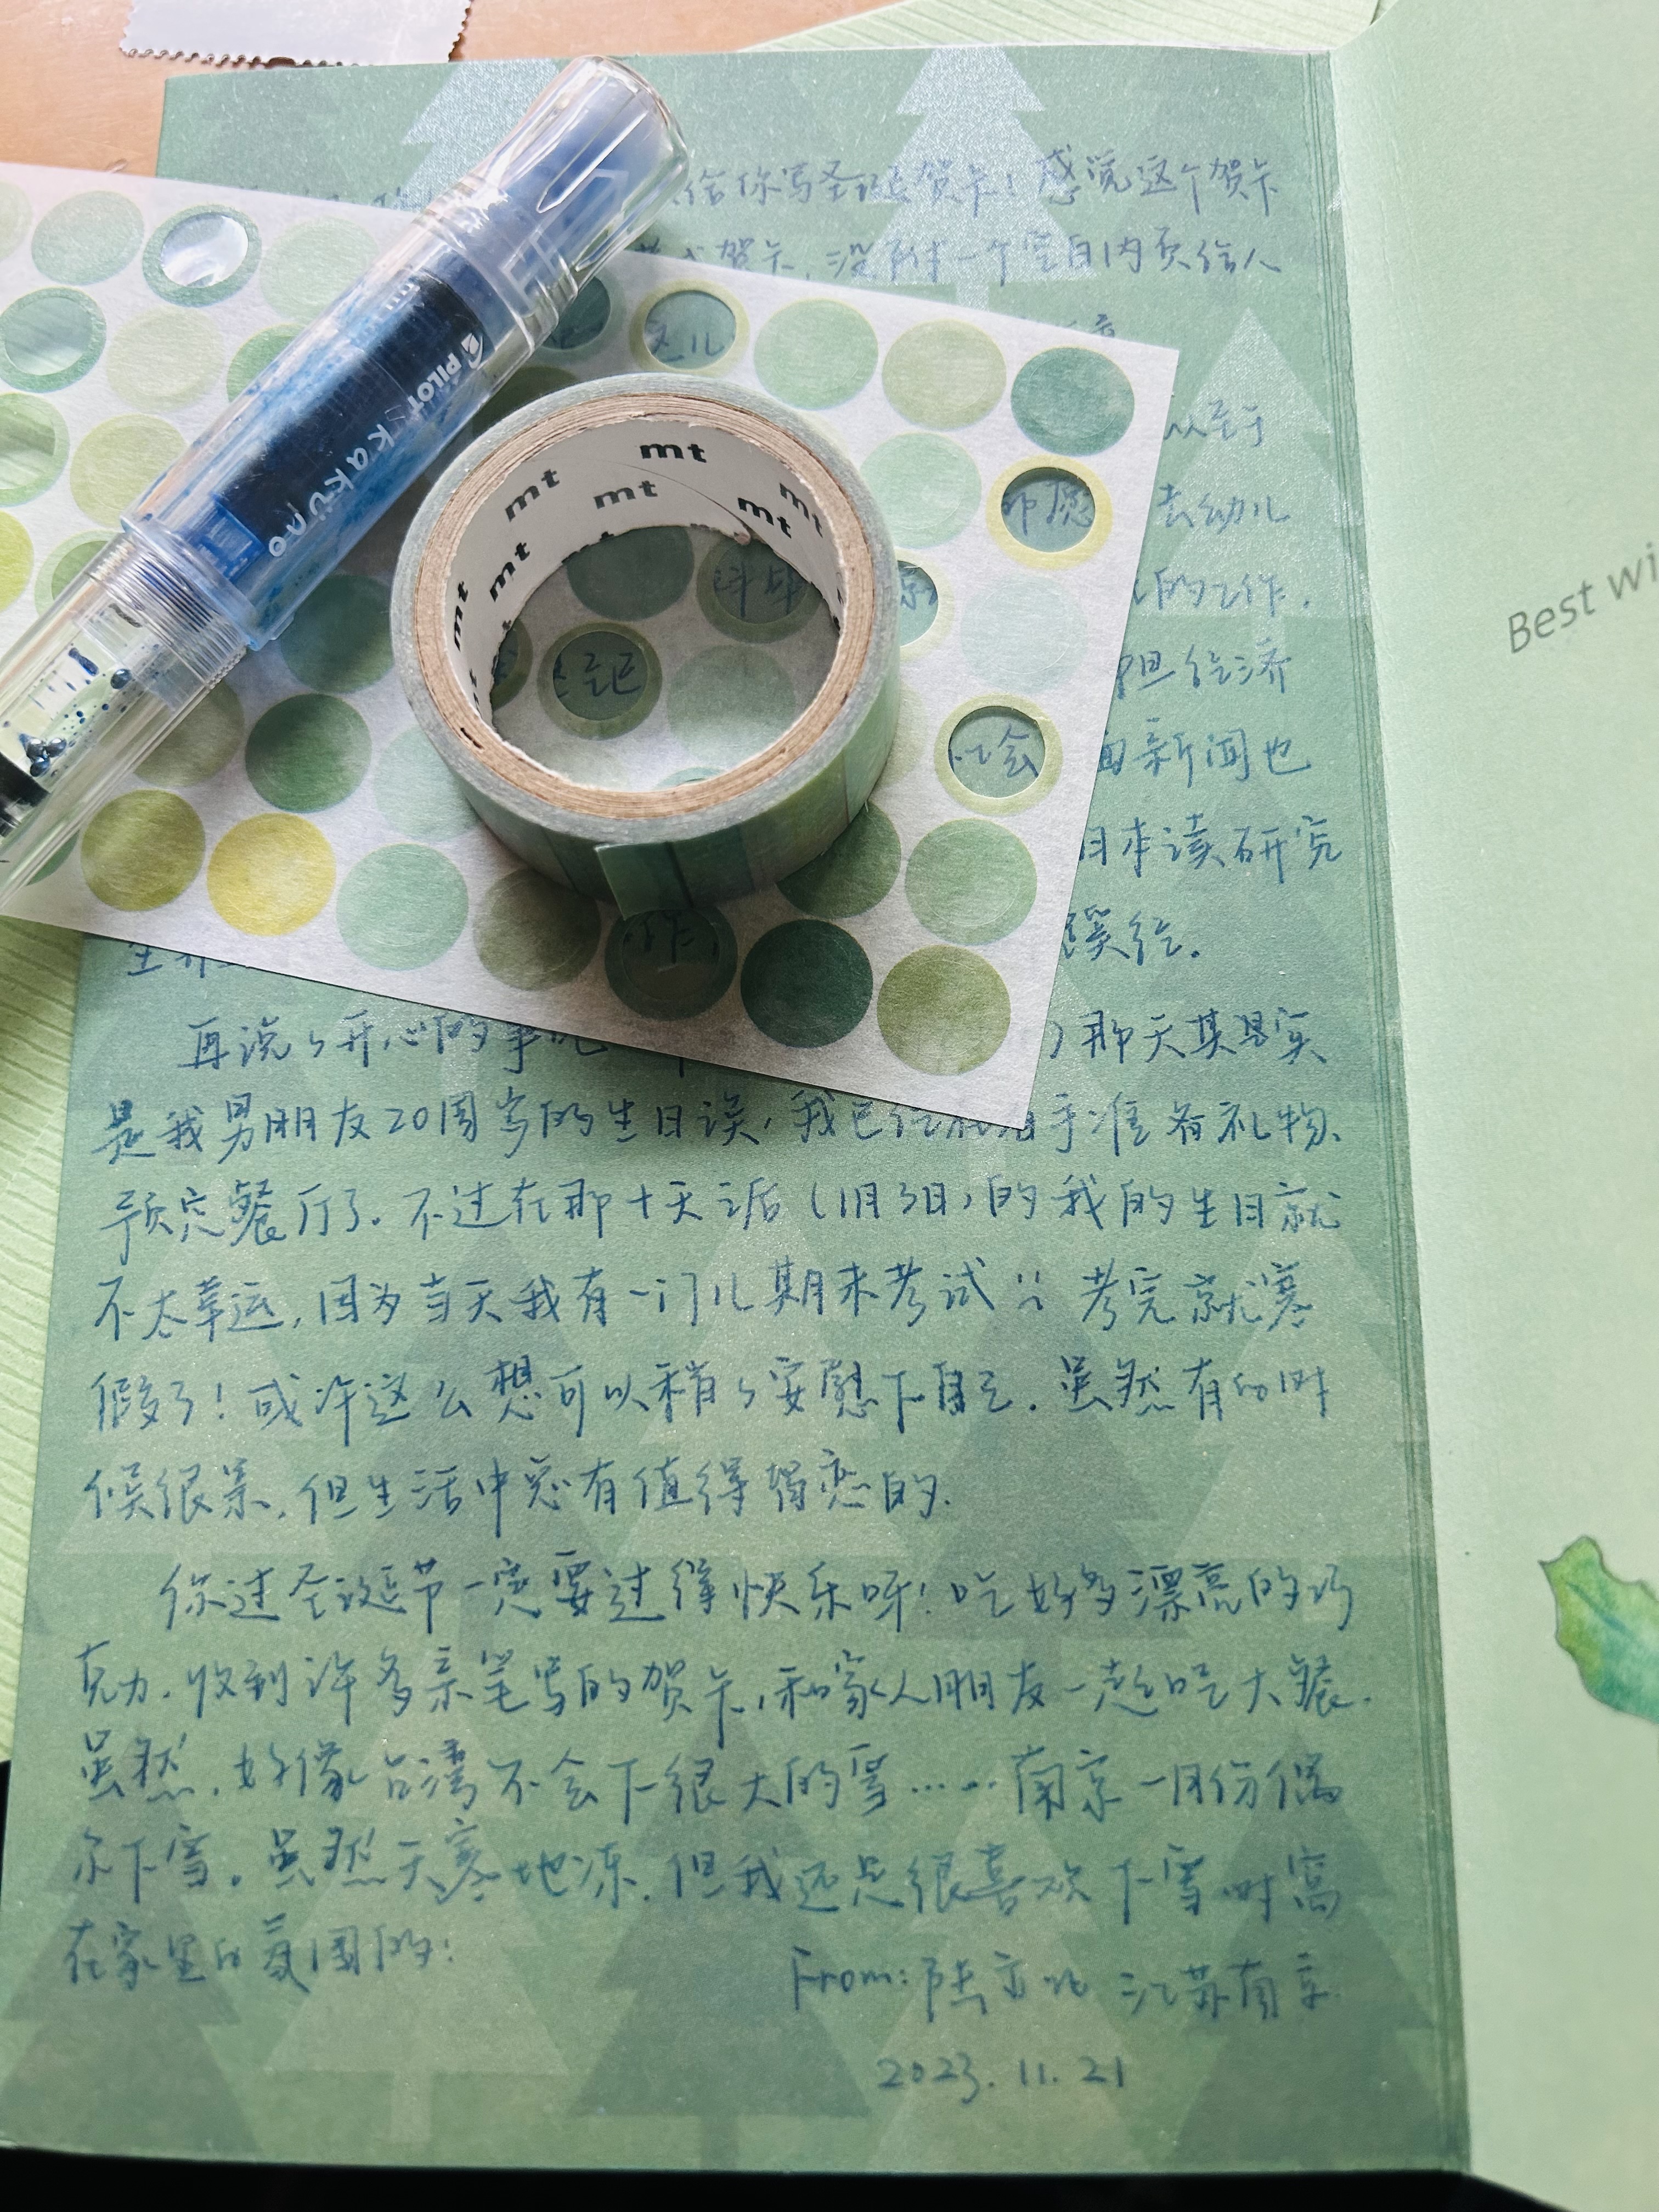 给你写圣诞贺卡！感觉这个贺卡
贺卡，没附一个空白内页给人
这儿
以至于
去幼儿
印愿
的工作.
担经济
面新闻也
会
日本读研究
奚给.
PILOT kakuno
mt mt mt mt mt mt mt
Best wi
再说々开心的事吧 那天其实
是我男朋友20周岁的生日诶，我已经 着手准备礼物、
预定餐厅了. 不过在那十天之后（1月3日）的我的生日就
不太幸运，因为当天我有一门儿期末考试 考完就寒
假了！或许这么想可以稍々安慰下自己. 虽然有的时
候很累，但生活中总有值得留恋的.
你过圣诞节一定要过得快乐呀！吃好多漂亮的巧
克力. 收到许多亲笔写的贺卡，和家人朋友一起吃大餐.
虽然，好像台湾不会下很大的雪……南京一月份偶
尔下雪。虽然天寒地冻，但我还是很喜欢下雪时窝
在家里的氛围的！
From: 陆 江苏南京
2023. 11. 21